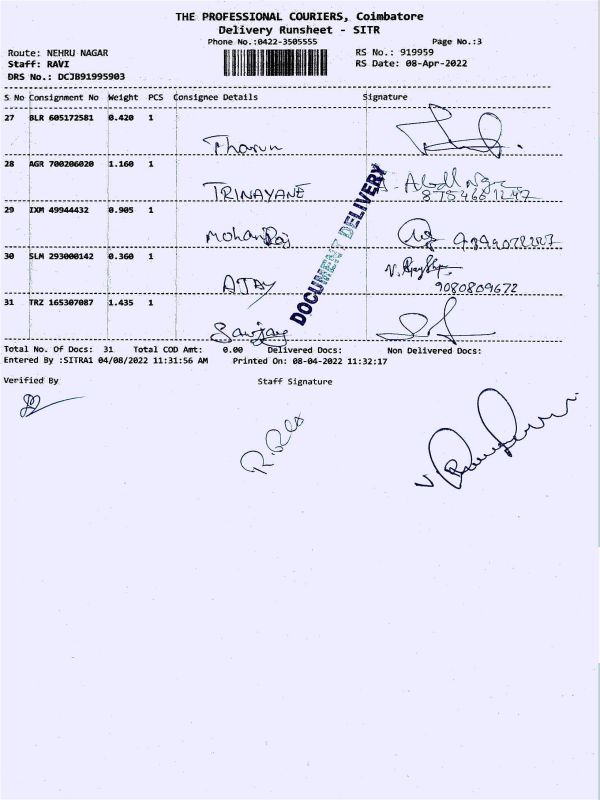 THE PROFESSIONAL COURIERS, Coimbatore
Delivery Runsheet - SITR
Phone No.:0422-3505555 Page No.:3
Route: NEHRU NAGAR RS No.: 919959
Staff: RAVI RS Date: 08-Apr-2022
DRS No.: DCJB91995903
S No Consignment No Weight PCS Consignee Details Signature
27 BLR 605172581 0.420 1
Tharun
28 AGR 700206020 1.160 1
TRINAYANE
29 IXM 49944432 0.905 1
Mohan Raj
30 SLM 293000142 0.360 1
AJAY 9080809672
31 TRZ 165307087 1.435 1
Sanjay
DOCUMENT DELIVERY
Total No. Of Docs: 31 Total COD Amt: 0.00 Delivered Docs: Non Delivered Docs:
Entered By :SITRA1 04/08/2022 11:31:56 AM Printed On: 08-04-2022 11:32:17
Verified By Staff Signature